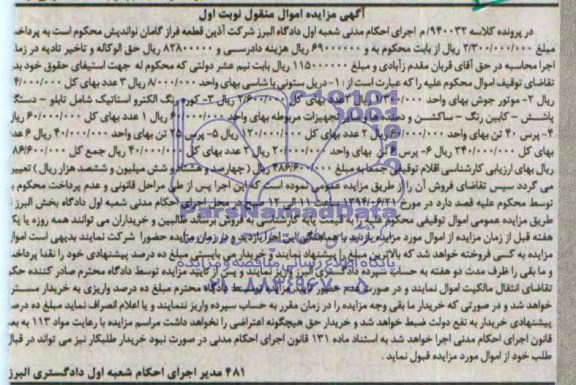 آگهی مزایده اموال منقول نوبت اول
در پرونده کلاسه ۹۴۰۰۳۲/م اجرای احکام مدنی شعبه اول دادگاه البرز شرکت آذین قطعه فراز گامان نواندیش محکوم است به پرداخت
مبلغ ۲/۳۰۰/۰۰۰/۰۰۰ ریال از بابت محکوم به و ۶۹۰۰۰۰۰۰ ریال هزینه دادرسی و ۸۲۸۰۰۰۰۰ ریال حق الوکاله و تاخیر تادیه در زمان
اجرا محاسبه در حق آقای قربان مقدم زآبادی و مبلغ ۱۱۵۰۰۰۰۰۰ ریال بابت نیم عشر دولتی که محکوم له جهت استیفای حقوق خود بدوا
تقاضای توقیف اموال محکوم علیه را که عبارت است از: ۱- دریل ستونی با شاسی بهای واحد ۸/۰۰۰/۰۰۰ ریال ۳ عدد بهای کل
ریال ۲- موتور جوش بهای واحد عدد بهای کل ۲/۶۰۰/۰۰۰ ریال ۳- کوره رنگ الکترو استاتیک شامل تابلو - دستگاه
پاشش - کابین رنگ - ساکشن و تجهیزات مربوطه بهای واحد ریال ۱ عدد بهای کل ریال
۴- پرس ۴۰ تن بهای واحد ریال ۲ عدد بهای کل ریال ۵- پرس ۲۵ تن بهای واحد ۴۰/۰۰۰/۰۰۰ ریال ۶ عدد
بهای کل ۲۴۰/۰۰۰/۰۰۰ ریال ۶- پرس تن بهای واحد ۲۰/۰۰۰/۰۰۰ ریال ۲ عدد بهای کل ۴۰/۰۰۰/۰۰۰ ریال جمع کل
ریال بهای ارزیابی کارشناسی اقلام توقیفی جمعا به مبلغ ریال (چهارصد و هشتاد و شش میلیون و ششصد هزار ریال) تعیین
می گردد سپس تقاضای فروش آن را از طریق مزایده عمومی نموده است که این اجرا پس از طی مراحل قانونی و عدم پرداخت محکوم به
توسط محکوم علیه قصد دارد در مورخ ۱۳۹۴/۰۶/۲۱ ساعت ۱۱ الی ۱۲ صبح در محل اجرای احکام مدنی شعبه اول دادگاه بخش البرز از
طریق مزایده عمومی اموال توقیفی محکوم علیه را به فروش برساند طالبین و خریداران می توانند همه روزه یا یک
هفته قبل از زمان مزایده از اموال مورد مزایده بازدید با هماهنگی این اجرا بازدید و در زمان مزایده حضورا شرکت نمایند بدیهی است اموال
مزایده به کسی فروخته خواهد شد که بالاترین مبلغ را پیشنهاد نمایند و خریدار می بایستی ده درصد پیشنهادی خود را نقدا پرداخت
و ما بقی را ظرف مدت دو هفته به حساب سپرده دادگستری البرز واریز نمایند و پس از تایید مزایده توسط دادگاه محترم صادر کننده حکم
تقاضای انتقال مالکیت اموال نمایند و در صورت عدم توسط دادگاه محترم مبلغ ده درصد واریزی به خریدار مسترد
خواهد شد و در صورتی که خریدار ما بقی وجه مزایده را در زمان مقرر به حساب سپرده واریز ننمایند و یا اعلام انصراف نماید مبلغ ده درصد
پیشنهادی خریدار به نفع دولت ضبط خواهد شد و خریدار حق هیچگونه اعتراضی را نخواهد داشت مراسم مزایده با رعایت مواد ۱۱۳ به بعد
قانون اجرای احکام مدنی اجرا خواهد شد به استناد ماده ۱۳۱ قانون اجرای احکام مدنی در صورت نبود خریدار طلبکار نیز می تواند در قبال
طلب خود از اموال مورد مزایده قبول نماید.
۴۸۱ مدیر اجرای احکام شعبه اول دادگستری البرز
ParsNamadData
پایگاه اطلاع رسانی مناقصه و مزایده
۰۲۱-۸۸۳۴۹۶۷۰-۵